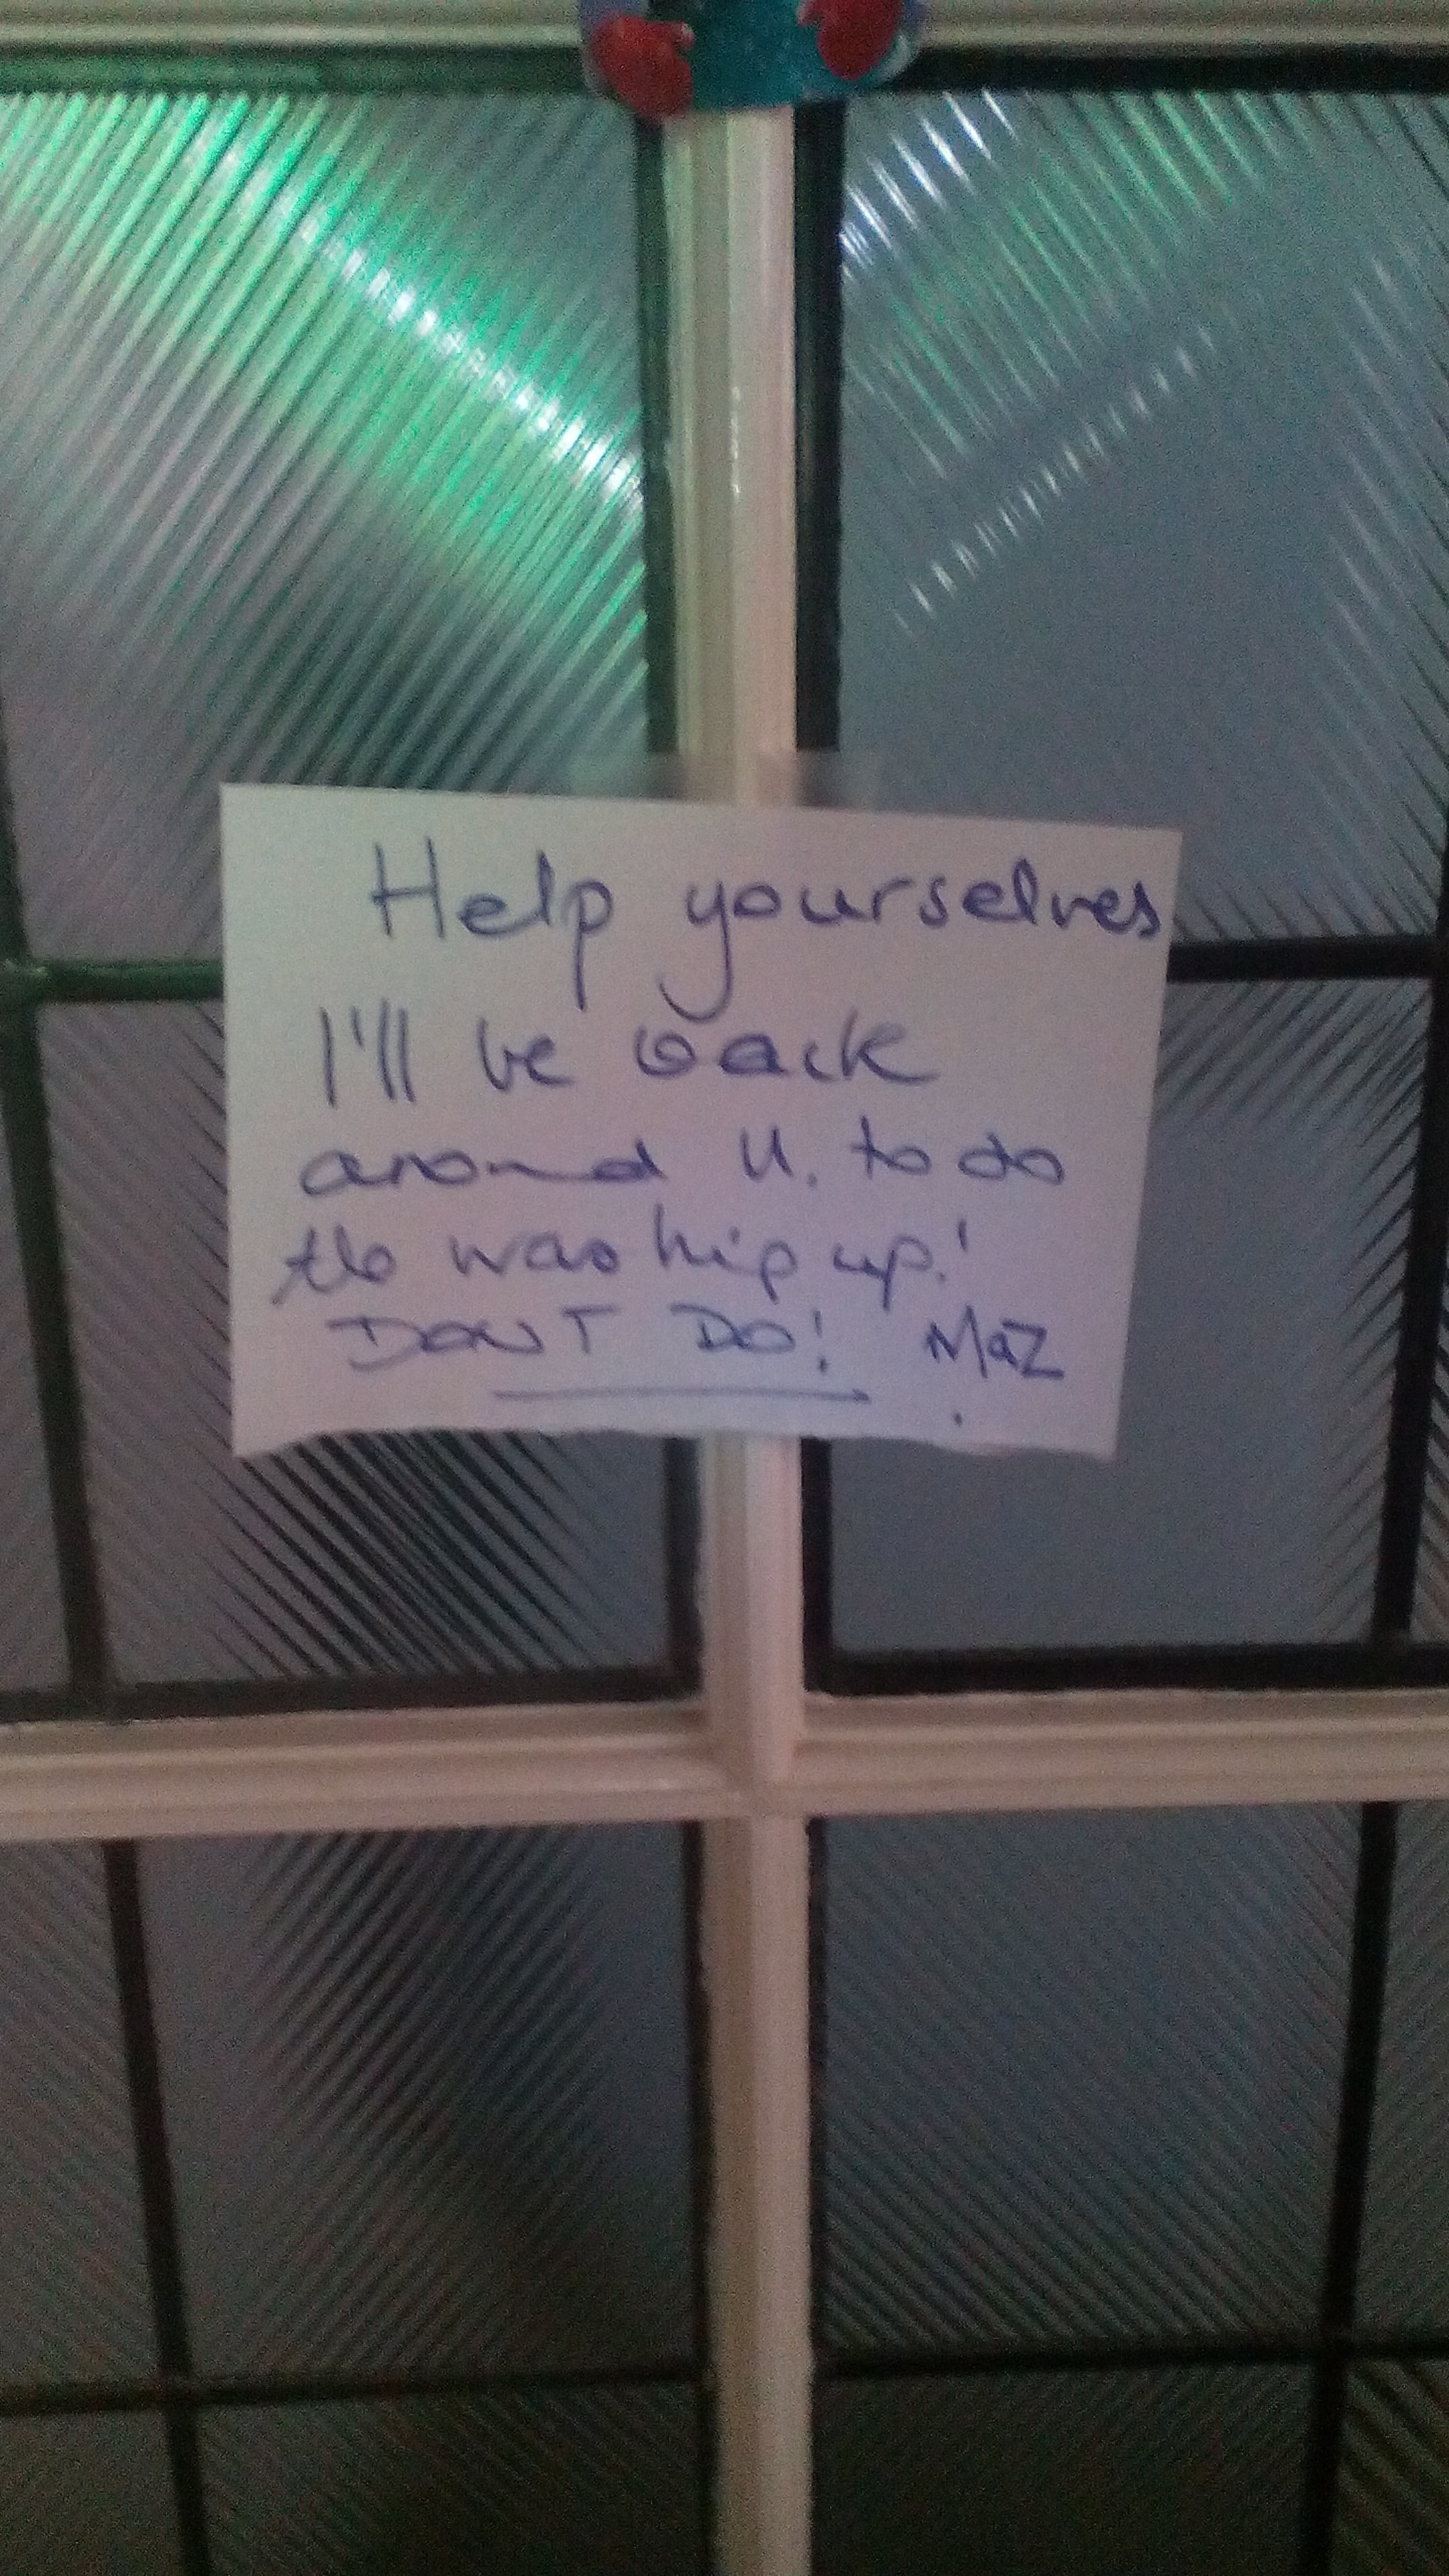 Help yourselves
I'll be back
around 11. to do
the waship up!
DONT DO! Maz